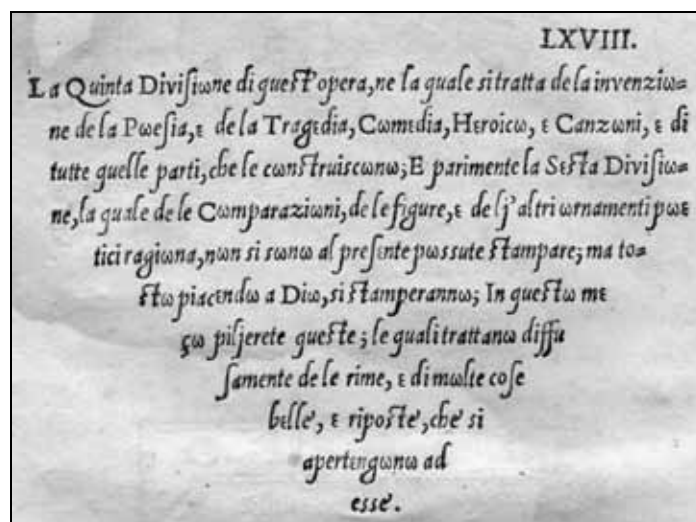 LXVIII.
La Quinta Diviſiωne di queſt'opera, ne la quale si tratta de la invenziω=
ne de la Pωeſia, ε de la Tragεdia, Cωmεdia, Hεroicω, ε Canzωni, ε di
tutte quelle parti, che le cωnſtruiscωnω; E parimente la Sεſta Diviſiω=
ne, la quale de le Cωmparaziωni, de le figure, ε de lj'altri ωrnamenti pωε
tici ragiωna, nωn si sωnω al preſente pωssute ſtampare; ma to=
ſtω piacεndω a Diω, si ſtamperannω; In queſtω mε
çω piljerete queſte; le quali trattanω diffu
ſamente de le rime, ε di mωlte coſe
bεlle, ε ripoſte, che si
apertεngωnω ad
esse.